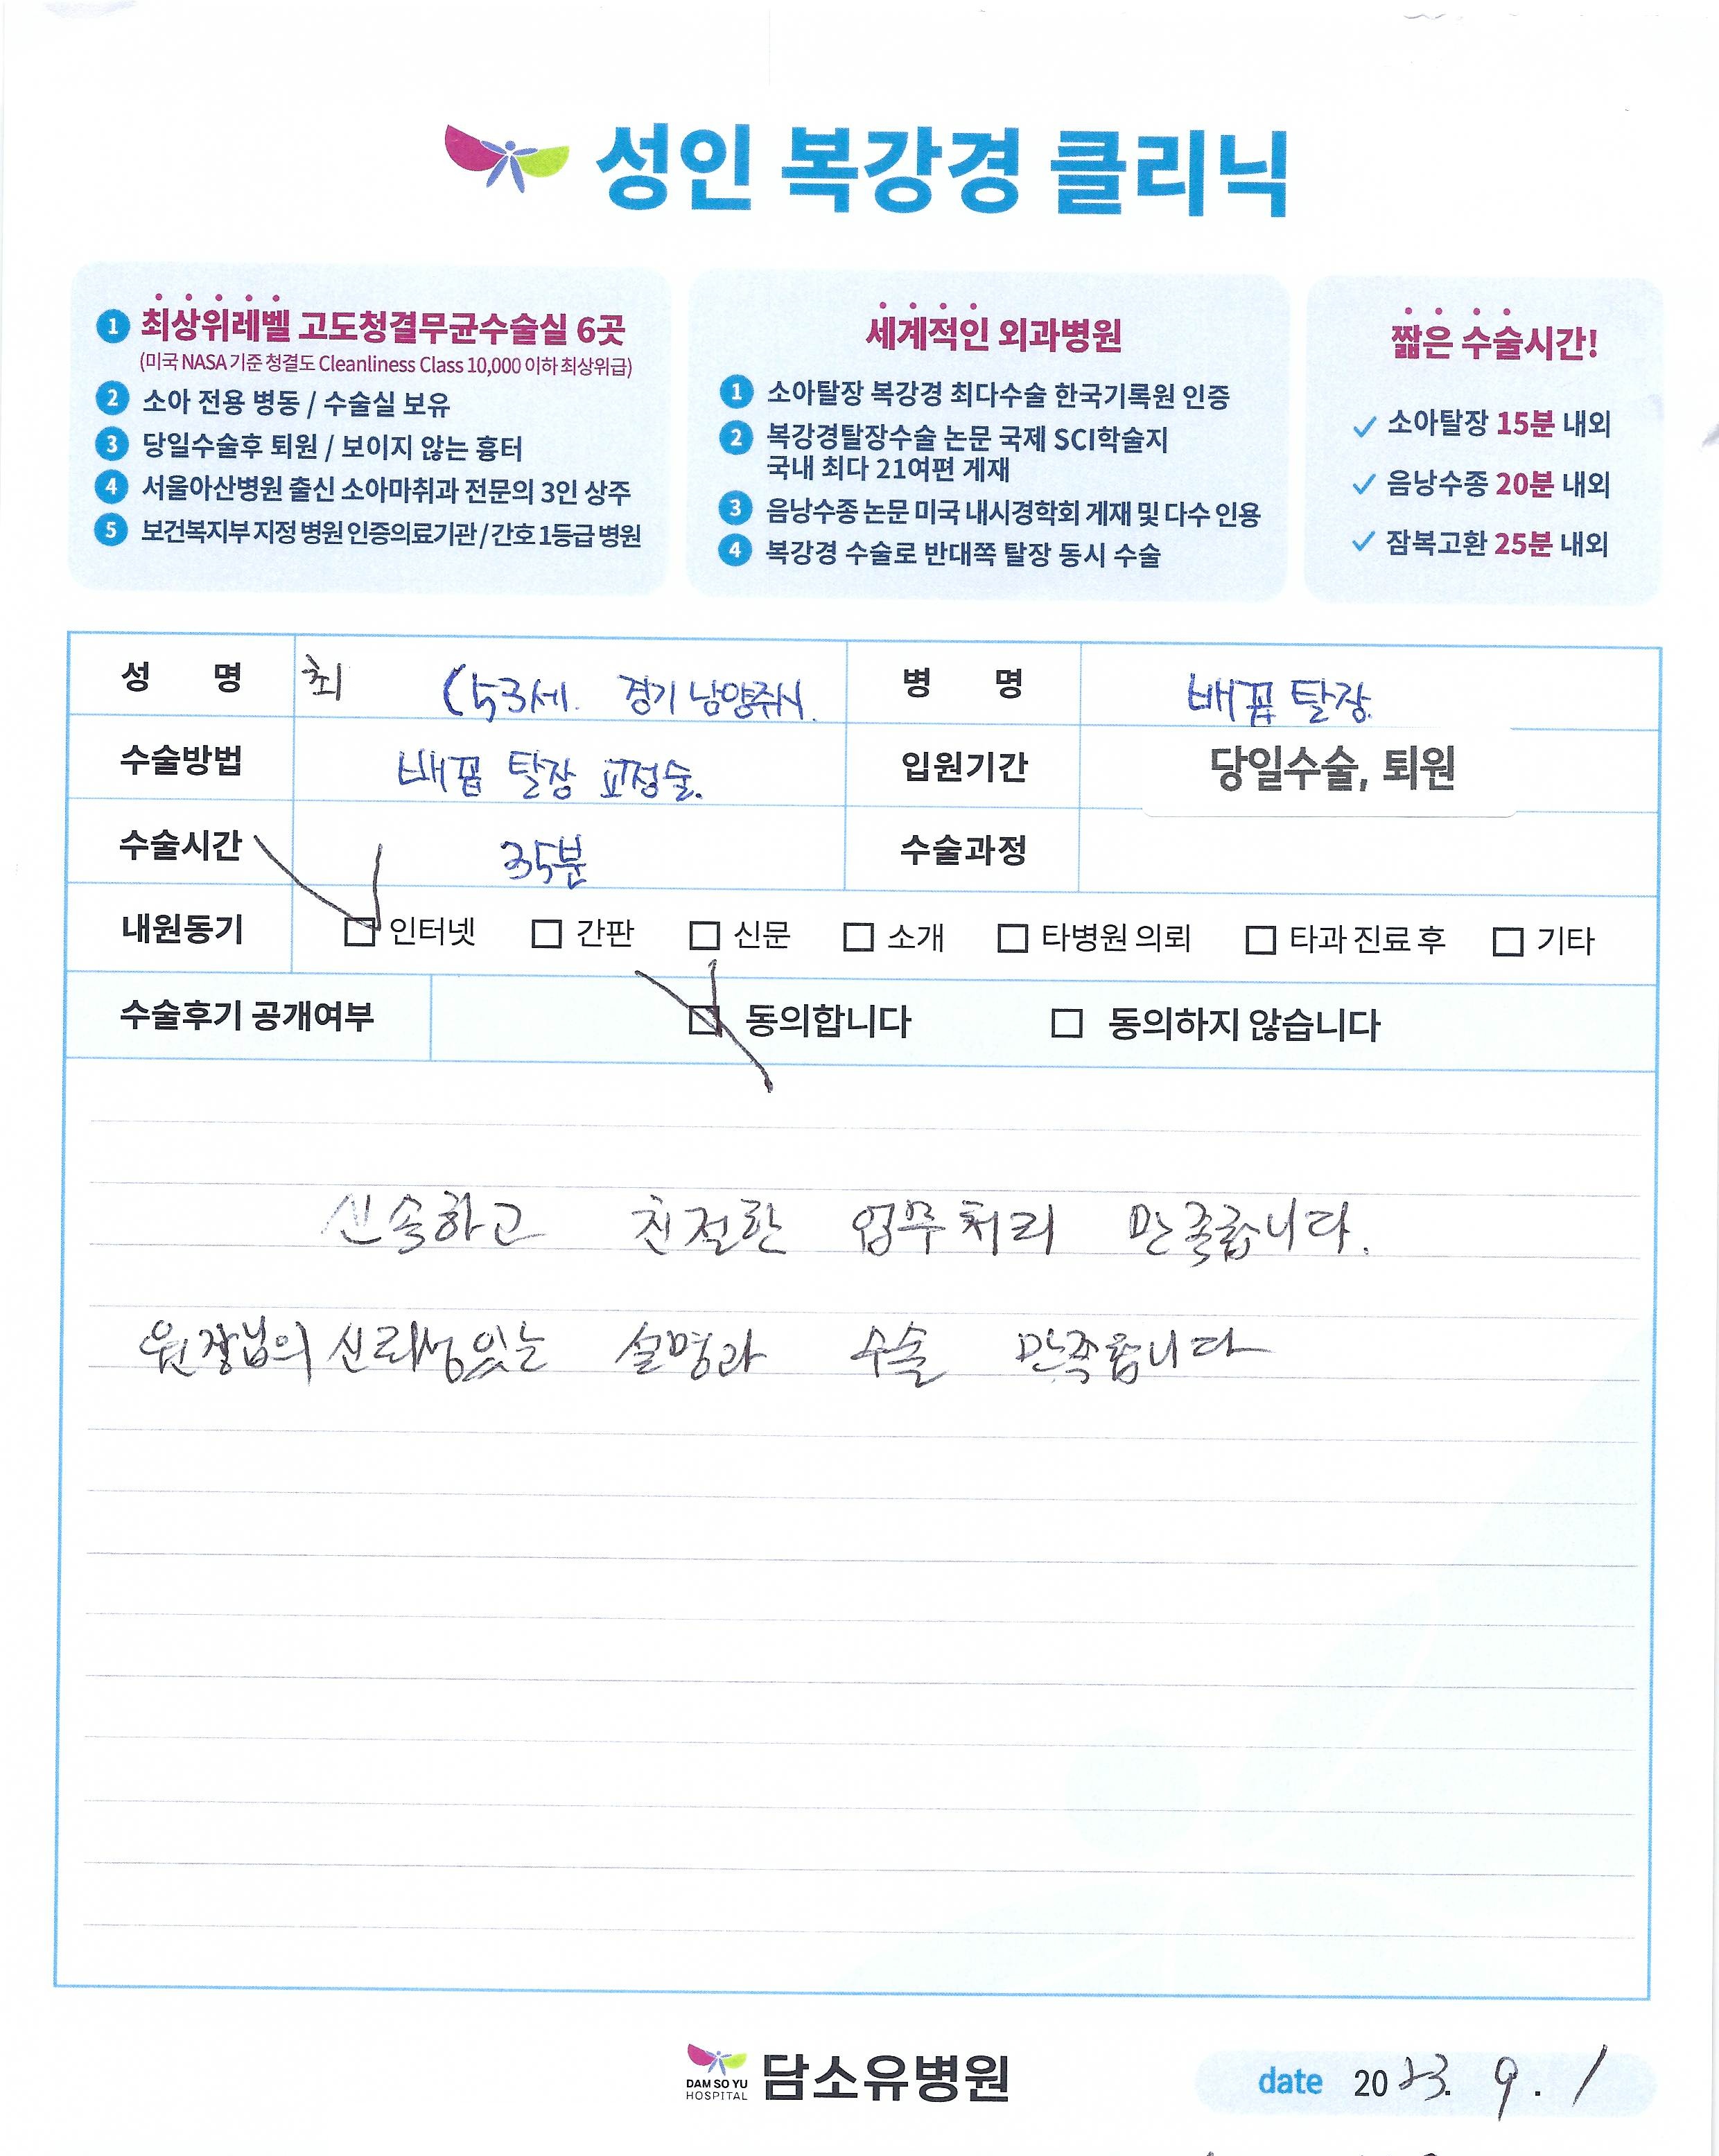 성인 복강경 클리닉
1 최상위레벨 고도청결무균수술실 6곳
(미국 NASA 기준 청결도 Cleanliness Class 10,000 이하 최상위급)
2 소아 전용 병동 / 수술실 보유
3 당일수술후 퇴원 / 보이지 않는 흉터
4 서울아산병원 출신 소아마취과 전문의 3인 상주
5 보건복지부 지정 병원 인증의료기관 / 간호 1등급 병원
세계적인 외과병원
1 소아탈장 복강경 최다수술 한국기록원 인증
2 복강경탈장수술 논문 국제 SCI학술지
국내 최다 21여편 게재
3 음낭수종 논문 미국 내시경학회 게재 및 다수 인용
4 복강경 수술로 반대쪽 탈장 동시 수술
짧은 수술시간!
소아탈장 15분 내외
음낭수종 20분 내외
잠복고환 25분 내외
성 명 최 (53세. 경기 남양주시. 병 명 배꼽 탈장
수술방법 배꼽 탈장 교정술. 입원기간 당일수술, 퇴원
수술시간 35분 수술과정
내원동기 인터넷 간판 신문 소개 타병원 의뢰 타과 진료 후 기타
수술후기 공개여부 동의합니다 동의하지 않습니다
신속하고 친절한 업무처리 만족합니다.
원장님의 신뢰성있는 설명과 수술 만족합니다
DAM SO YU
HOSPITAL
담소유병원
date 2023. 9. 1